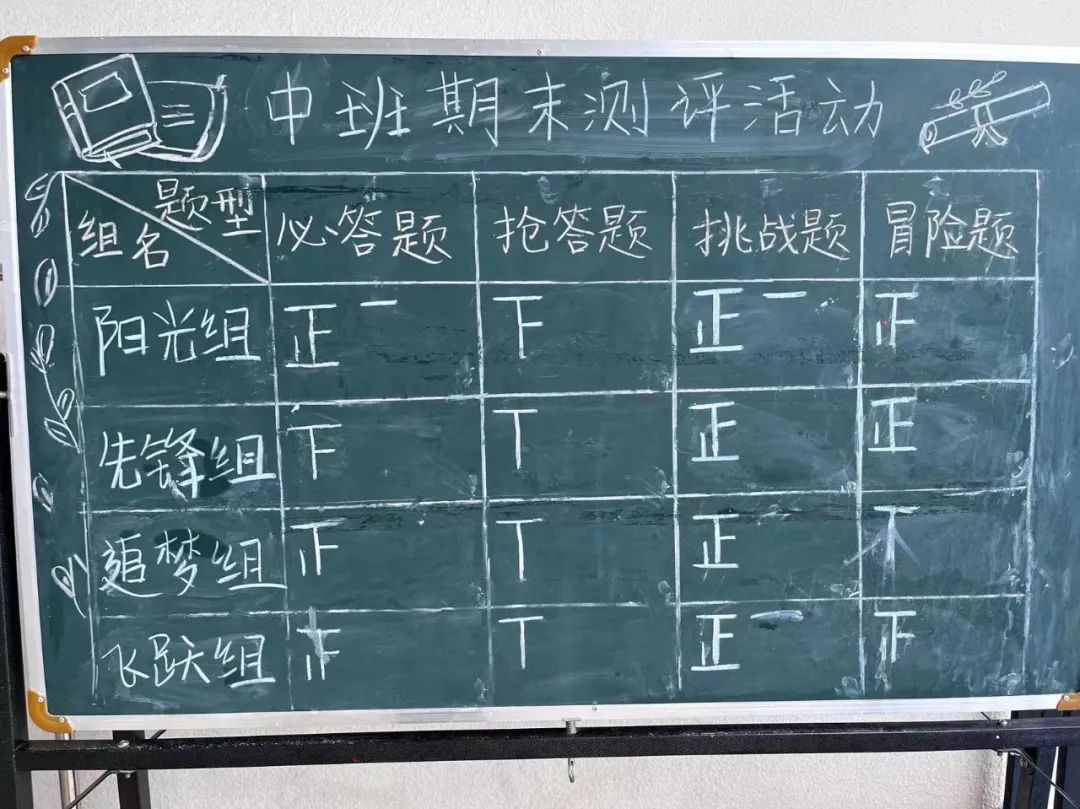 中班期末测评活动
题型 组名 必答题 抢答题 挑战题 冒险题
阳光组 正一 下 正一
先锋组 下 丅 正 正
追梦组 丅 正
飞跃组 丅 正一